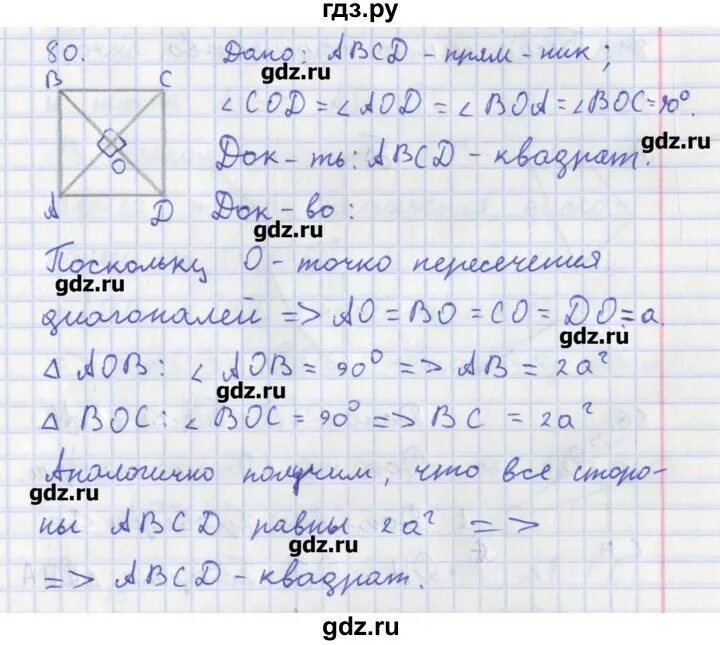 гдз.ру
80. Дано: ABCD - прям-ник;
gdz.ru
B C
∠COD = ∠AOD = ∠BOA = ∠BOC = 90°.
gdz.ru
O
Док-ть: ABCD - квадрат.
A D
Док-во:
gdz.ru
Поскольку O - точко пересечения
gdz.ru
диагоналей => AO = BO = CO = DO = a.
gdz.ru
△ AOB: ∠AOB = 90° => AB = 2a²
gdz.ru
△ BOC: ∠BOC = 90° => BC = 2a²
Аналогично получим, что все сторо-
gdz.ru
ны ABCD равны 2a² =>
gdz.ru
=> ABCD - квадрат.
gdz.ru